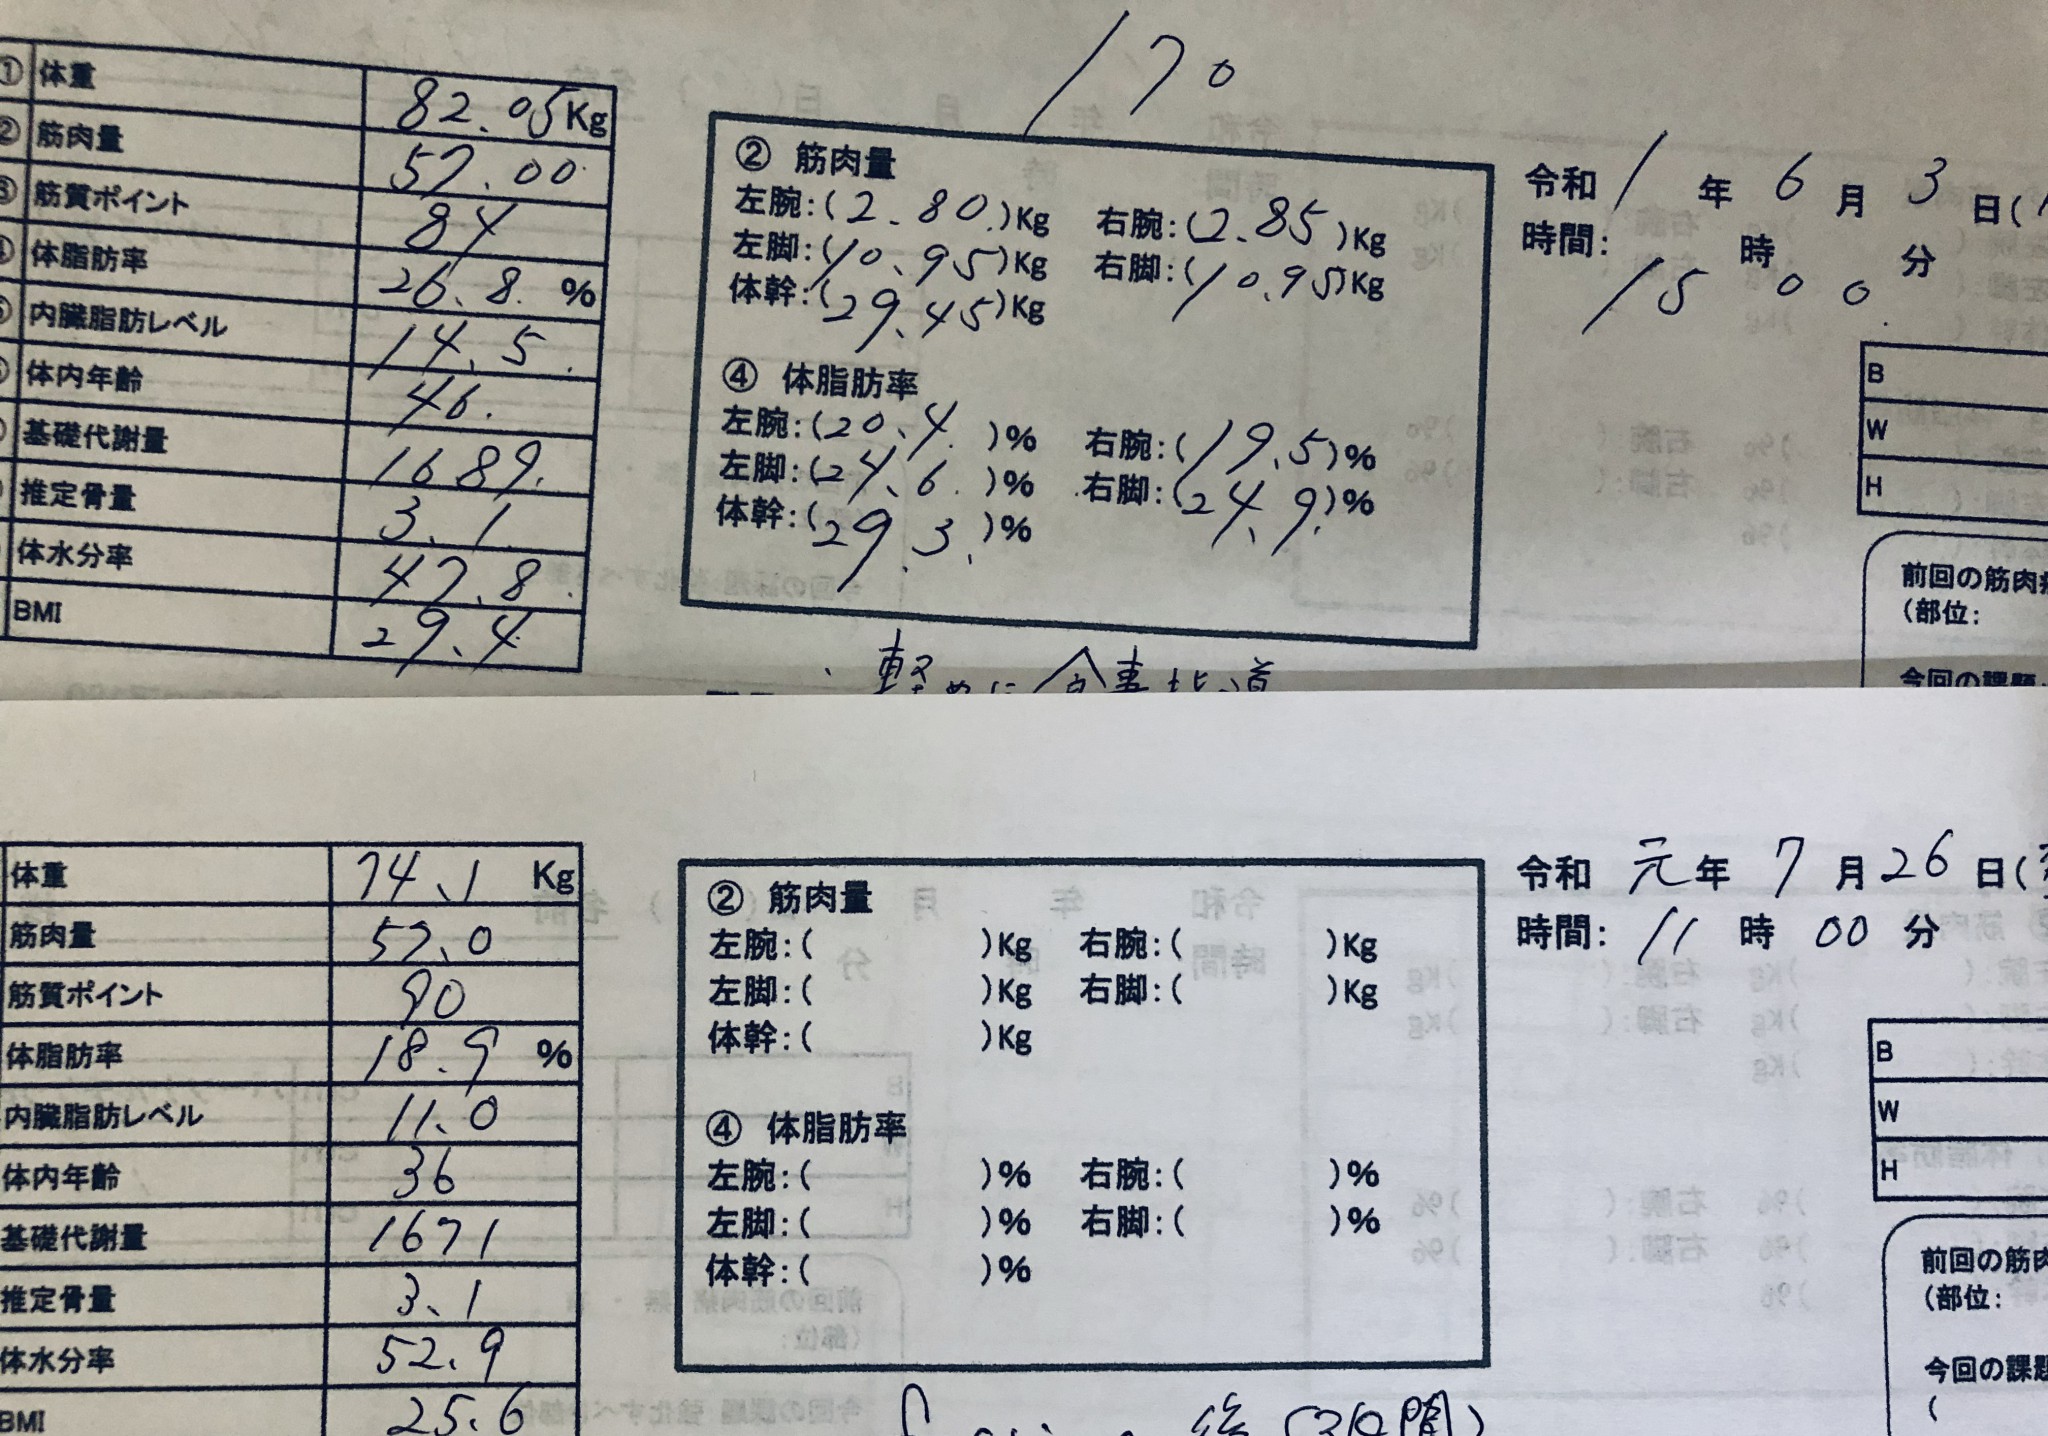 170
① 体重 82.05Kg
② 筋肉量 57.00
③ 筋質ポイント 84
④ 体脂肪率 26.8 %
⑤ 内臓脂肪レベル 14.5
体内年齢 46.
基礎代謝量 1689.
推定骨量 3.1
体水分率 47.8
BMI 29.4
② 筋肉量
左腕:(2.80)Kg 右腕:(2.85)Kg
左脚:(10.95)Kg 右脚:(10.95)Kg
体幹:(29.45)Kg
④ 体脂肪率
左腕:(20.4)% 右腕:(19.5)%
左脚:(24.6)% 右脚:(24.9)%
体幹:(29.3)%
令和 1 年 6 月 3 日(
時間: 15 時 00 分
B
W
H
前回の筋肉
(部位:
今回の課題
軽めに食事指導
体重 74.1 Kg
筋肉量 57.0
筋質ポイント 90
体脂肪率 18.9 %
内臓脂肪レベル 11.0
体内年齢 36
基礎代謝量 1671
推定骨量 3.1
体水分率 52.9
BMI 25.6
② 筋肉量
左腕:( )Kg 右腕:( )Kg
左脚:( )Kg 右脚:( )Kg
体幹:( )Kg
④ 体脂肪率
左腕:( )% 右腕:( )%
左脚:( )% 右脚:( )%
体幹:( )%
令和 元年 7 月 26 日(
時間: 11 時 00 分
B
W
H
前回の筋肉
(部位:
今回の課題
(
後(3日間)